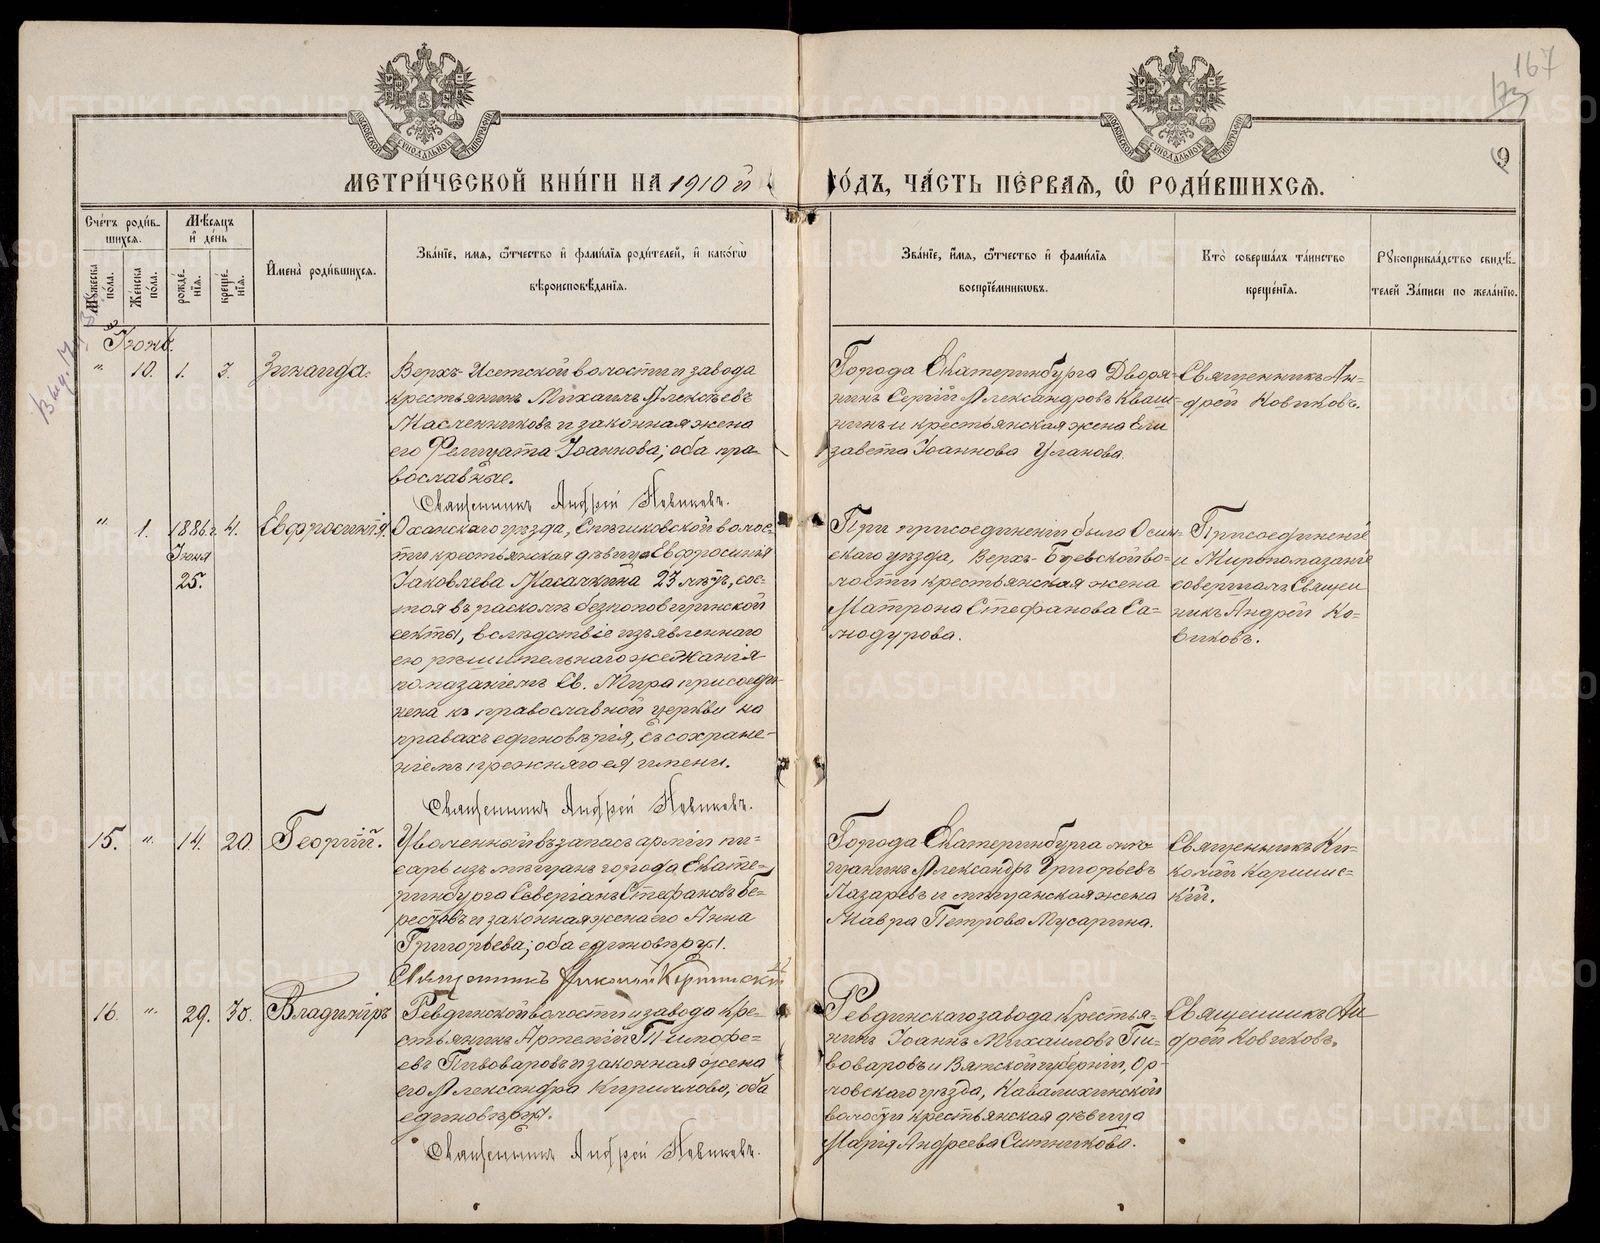 167
173
9
МЕТРИ́ЧЕСКОЙ КНИ́ГИ НА 1910 й
ГО́ДЪ, ЧА́СТЬ ПЕ́РВАЯ, Ѡ РОДИ́ВШИХСЯ.
Сче́тъ роди́в-
шихся.
Мѣ́сяцъ
и де́нь
Мꙋ́жеска
по́ла.
Же́нска
по́ла.
рожде́-
нія.
креще́-
нія.
Имена̀ роди́вшихся.
Зва́ніе, имя, ѻтчество и фами́лія роди́телей, и како́гѡ
вѣроисповѣ́данія.
Зва́ніе, и́мя, ѻтчество и фами́лія
воспріе́мниковъ.
Кто̀ соверша́лъ та́инство
креще́нія.
Рꙋкоприкла́дство свидѣ́-
телей за́писи по жела́нію.
Іюнь.
" 10. 1. 3. Зинаида.
Верхъ-Исетской волости и завода
крестьянинъ Михаилъ Алексѣевъ
Масленниковъ и законная жена
его Фелицата Іоаннова; оба пра-
вославные.
Священникъ Андрей Новиковъ.
Города Екатеринбурга Дворя-
нинъ Сергій Александровъ Кваш-
нинъ и крестьянская жена Ели
завета Іоаннова Уланова.
Священникъ Ан-
дрей Новиковъ.
" 1. 1886 г. 4. Евфросинія.
Іюня
25.
Оханскаго уѣзда, волос-
ти крестьянская дѣвица Евфросинья
Іаковлева Касаткина 23 лѣтъ, сос-
тоя въ расколѣ безпоповщинской
секты, вслѣдствіе изъявленнаго
ею рѣшительнаго желанія
помазаніемъ Св. Мира присоеди-
нена къ православной церкви на
правахъ единовѣрія, съ сохране-
ніемъ прежняго ея имени.
Священникъ Андрей Новиковъ.
При присоединеніи была Осин-
скаго уѣзда, Верхъ-Буевской во-
лости крестьянская жена
Матрона Стефанова Са-
лодурова.
Присоединеніе
и Миропомазаніе
совершалъ Священ
никъ Андрей Но-
виковъ.
15. " 14. 20. Георгій.
Уволенный въ запасъ арміи пи-
сарь изъ мѣщанъ города Екате-
ринбурга Северіанъ Стефановъ Бе-
рестовъ и законная жена его Анна
Григорьева; оба единовѣрцы.
Священникъ Николай Каришскій
Города Екатеринбурга мѣ-
щанинъ Александръ Григорьевъ
Лазаревъ и мѣщанская жена
Мавра Петрова Мусарина.
Священникъ Ни-
колай Каришс-
кій.
16. " 29. 30. Владиміръ
Ревдинской волости и завода кре-
стьянинъ Артемій Тимофе-
евъ Пивоваровъ и законная жена
его Александра Кириллова; оба
единовѣрцы.
Священникъ Андрей Новиковъ.
Ревдинскаго завода крестья-
нинъ Іоаннъ Михаиловъ Пи-
воваровъ и Вятской губерніи, Ор-
ловскаго уѣзда, Кавалихинской
волости крестьянская дѣвица
Марія Андреева Ситникова.
Священникъ Ан
дрей Новиковъ.